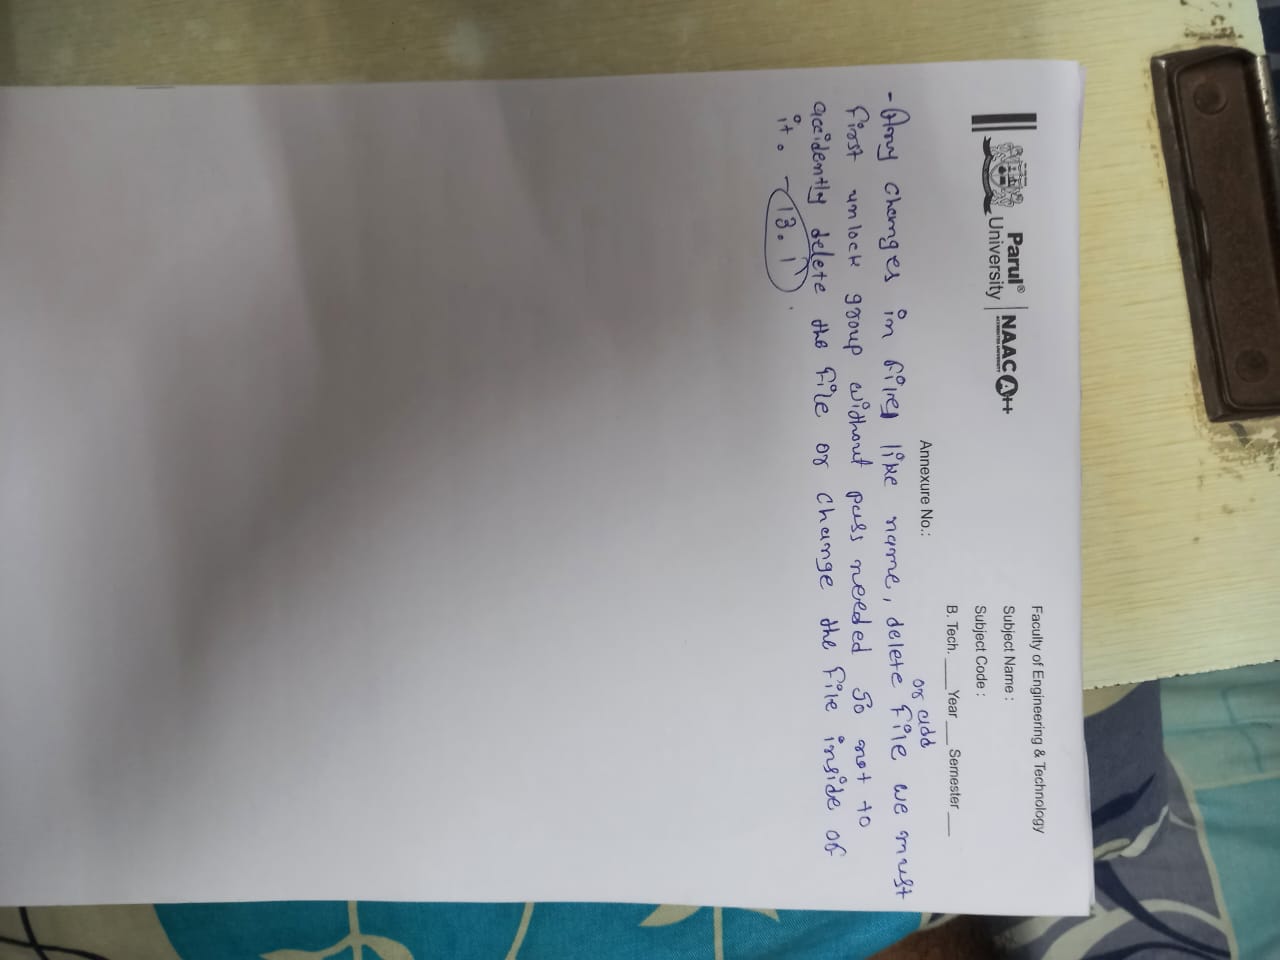 Parul®
University
NAAC A++
ACCREDITED UNIVERSITY
Faculty of Engineering & Technology
Subject Name :
Subject Code :
B. Tech. ____Year ___ Semester ___
Annexure No.:
or add
- Any changes in files like name, delete file we must
first unlock group without pass needed so not to
accidently delete the file or change the file inside of
it. - 13.1